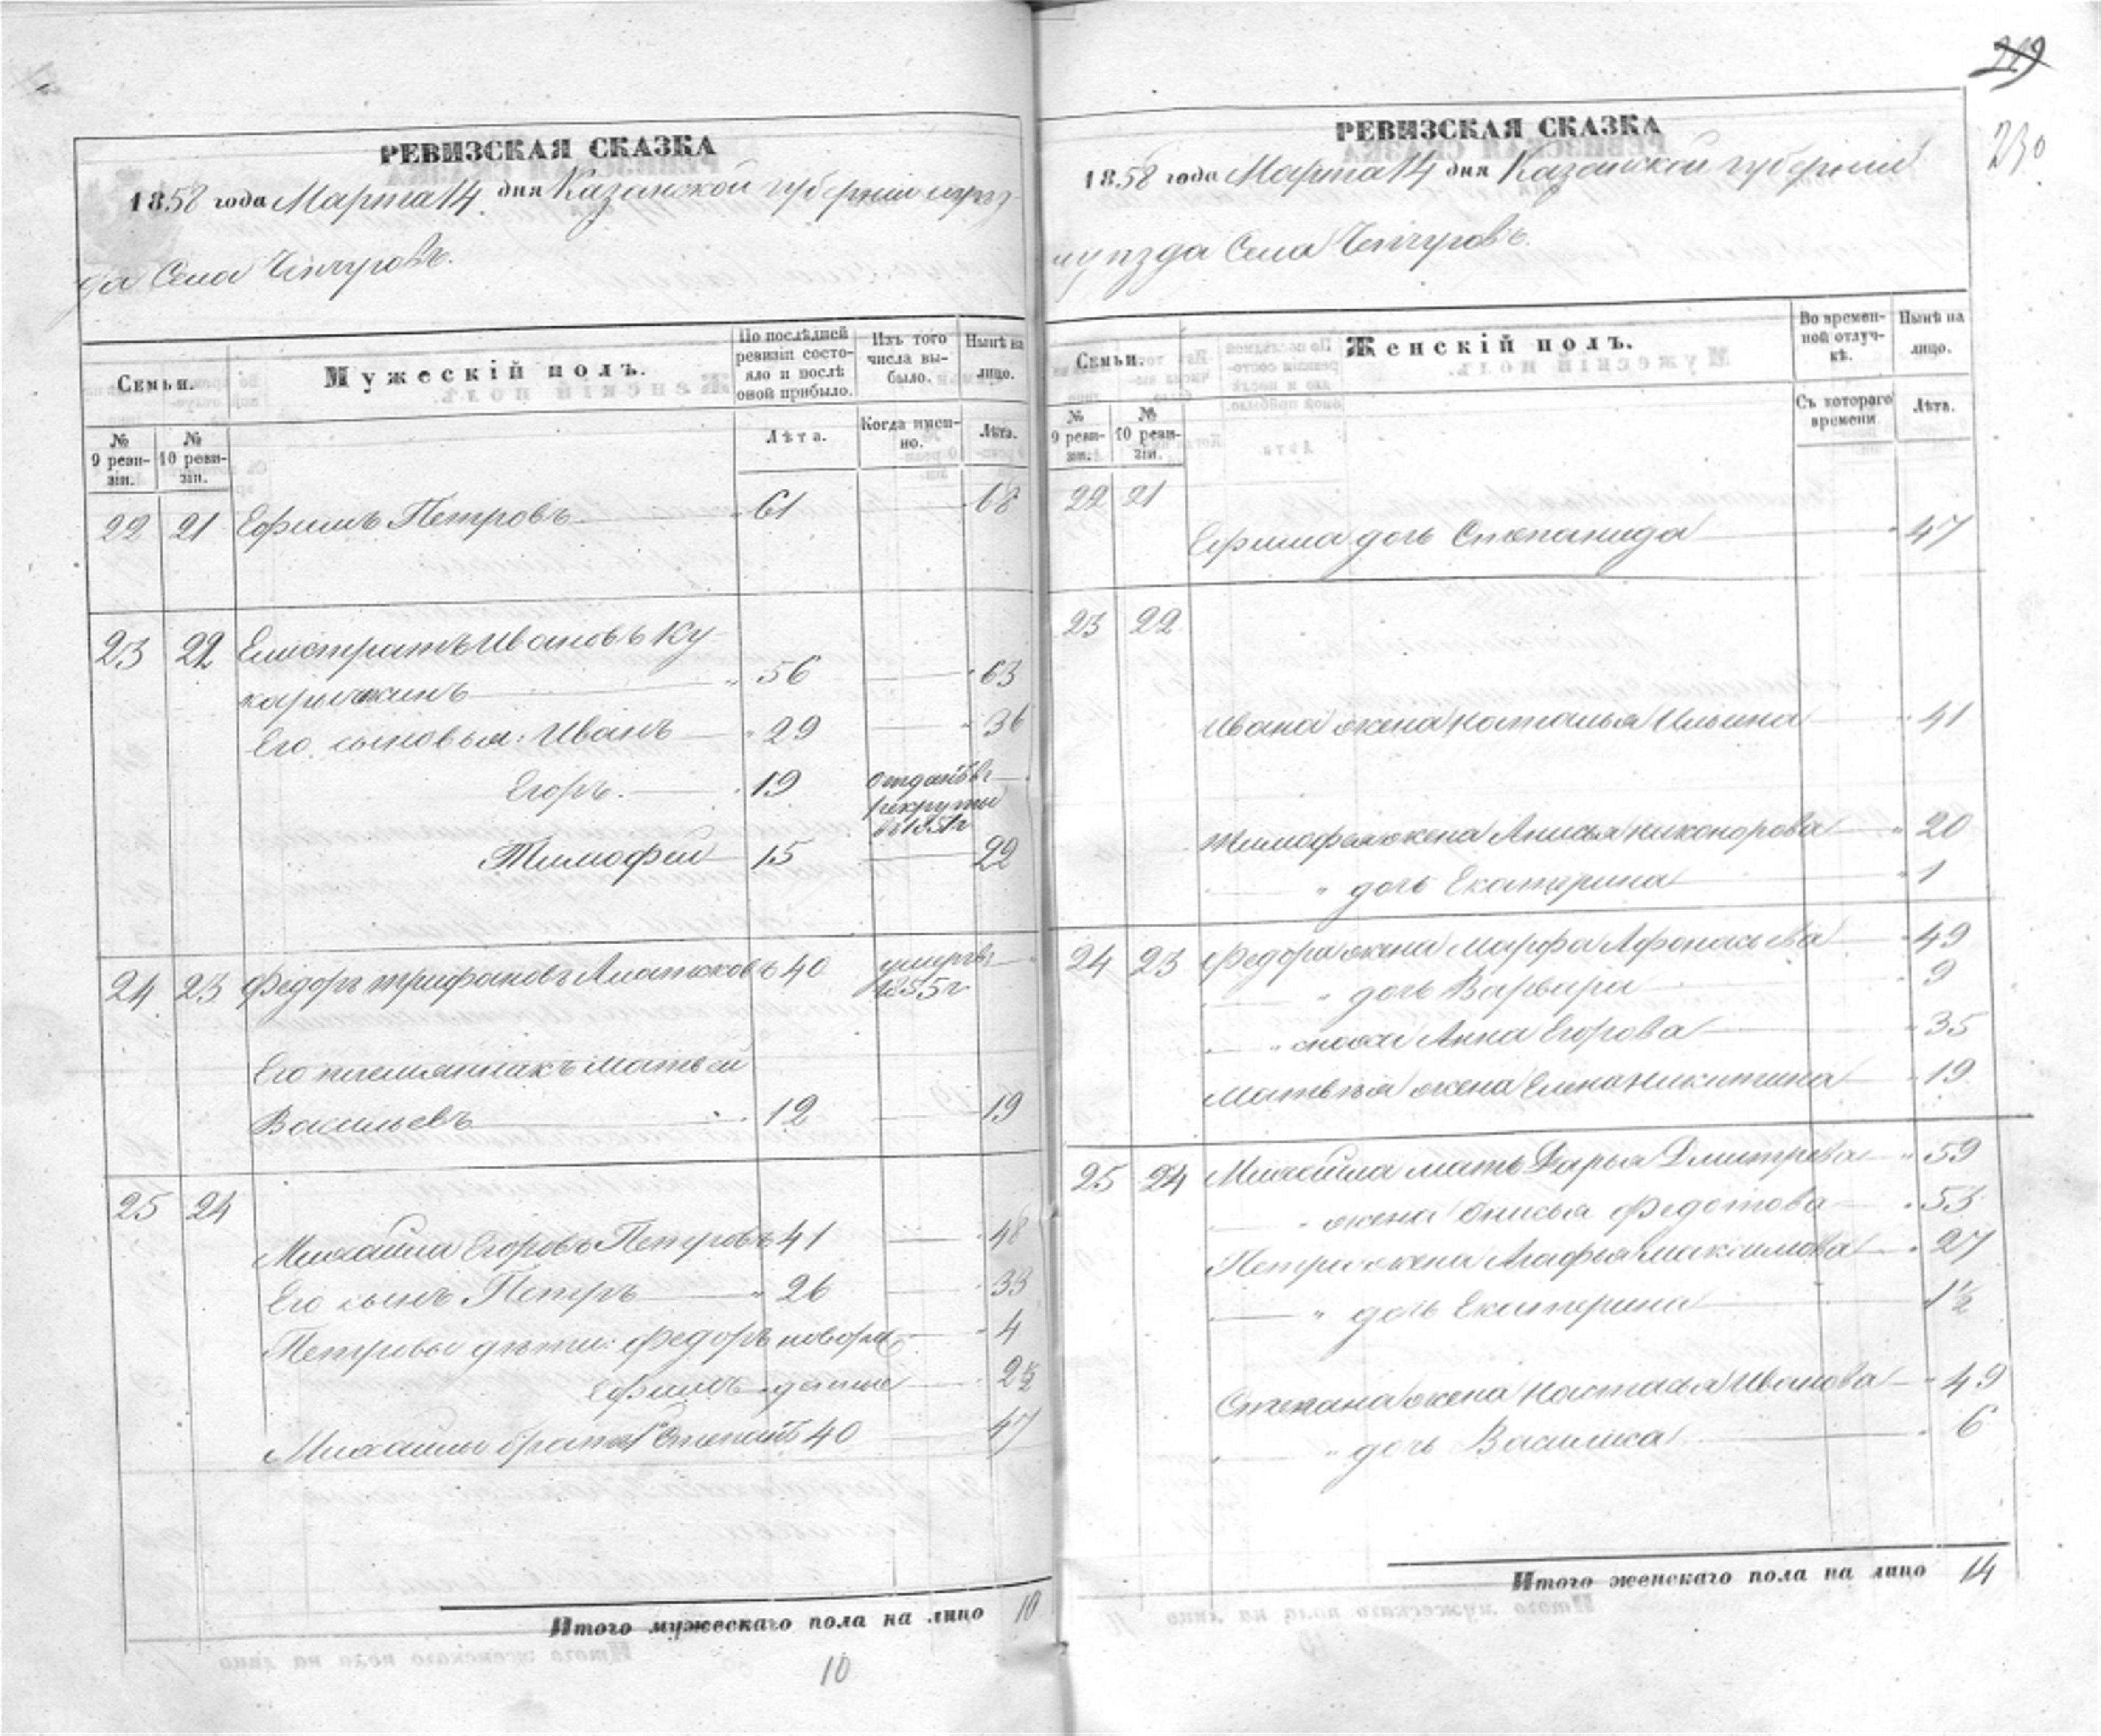 РЕВИЗСКАЯ СКАЗКА
1858 года Марта 14 дня Казанской губерніи
да Села Чепчуговъ.
Семьи.
Мужескій полъ.
По послѣдней ревизіи состояло и послѣ оной прибыло.
Изъ того числа выбыло.
Нынѣ на лицо.
№ 9 ревизіи.
№ 10 ревизіи.
Лѣта.
Когда именно.
Лѣта.
22 21 Ефимъ Петровъ 61 68
23 22 Елистратъ Ивановъ Ку-
56 63
Его сыновья: Иванъ 29 36
Егоръ. 19 отданъ въ рекруты въ 1851 г
Тимофей 15 22
24 23 Федоръ Трифоновъ 40 умеръ въ 1855 г
Его племянникъ Матвей
Васильевъ 12 19
25 24
Михайла Егоровъ Петровъ 41 48
Его сынъ Петръ 26 33
Петровы дѣти: Федоръ новорож- 4
Ефимъ денные 2½
Михайлы братъ Степанъ 40 47
Итого мужескаго пола на лицо 10
10
219
230
РЕВИЗСКАЯ СКАЗКА
1858 года Марта 14 дня Казанской губерніи
уѣзда Села Чепчуговъ.
Семьи.
Женскій полъ.
Во временной отлучкѣ.
Нынѣ на лицо.
№ 9 ревизіи.
№ 10 ревизіи.
Съ котораго времени
Лѣта.
22 21
Ефима дочь Степанида 47
23 22
Ивана жена Наталья Ильина 41
Тимофея жена Анисья Никонорова 20
" дочь Екатерина 1
24 23 Федора жена Марфа Афонасьева 49
" дочь Варвара 9
" сноха Анна Егорова 35
Матвѣя жена Елена Никитина 19
25 24 Михайла мать Дарья Дмитрева 59
" жена Анисья Федотова 53
Петра жена Агафья Максимова 27
" дочь Екатерина 1½
Степана жена Настасья Иванова 49
" дочь Василиса 6
Итого женскаго пола на лицо 14